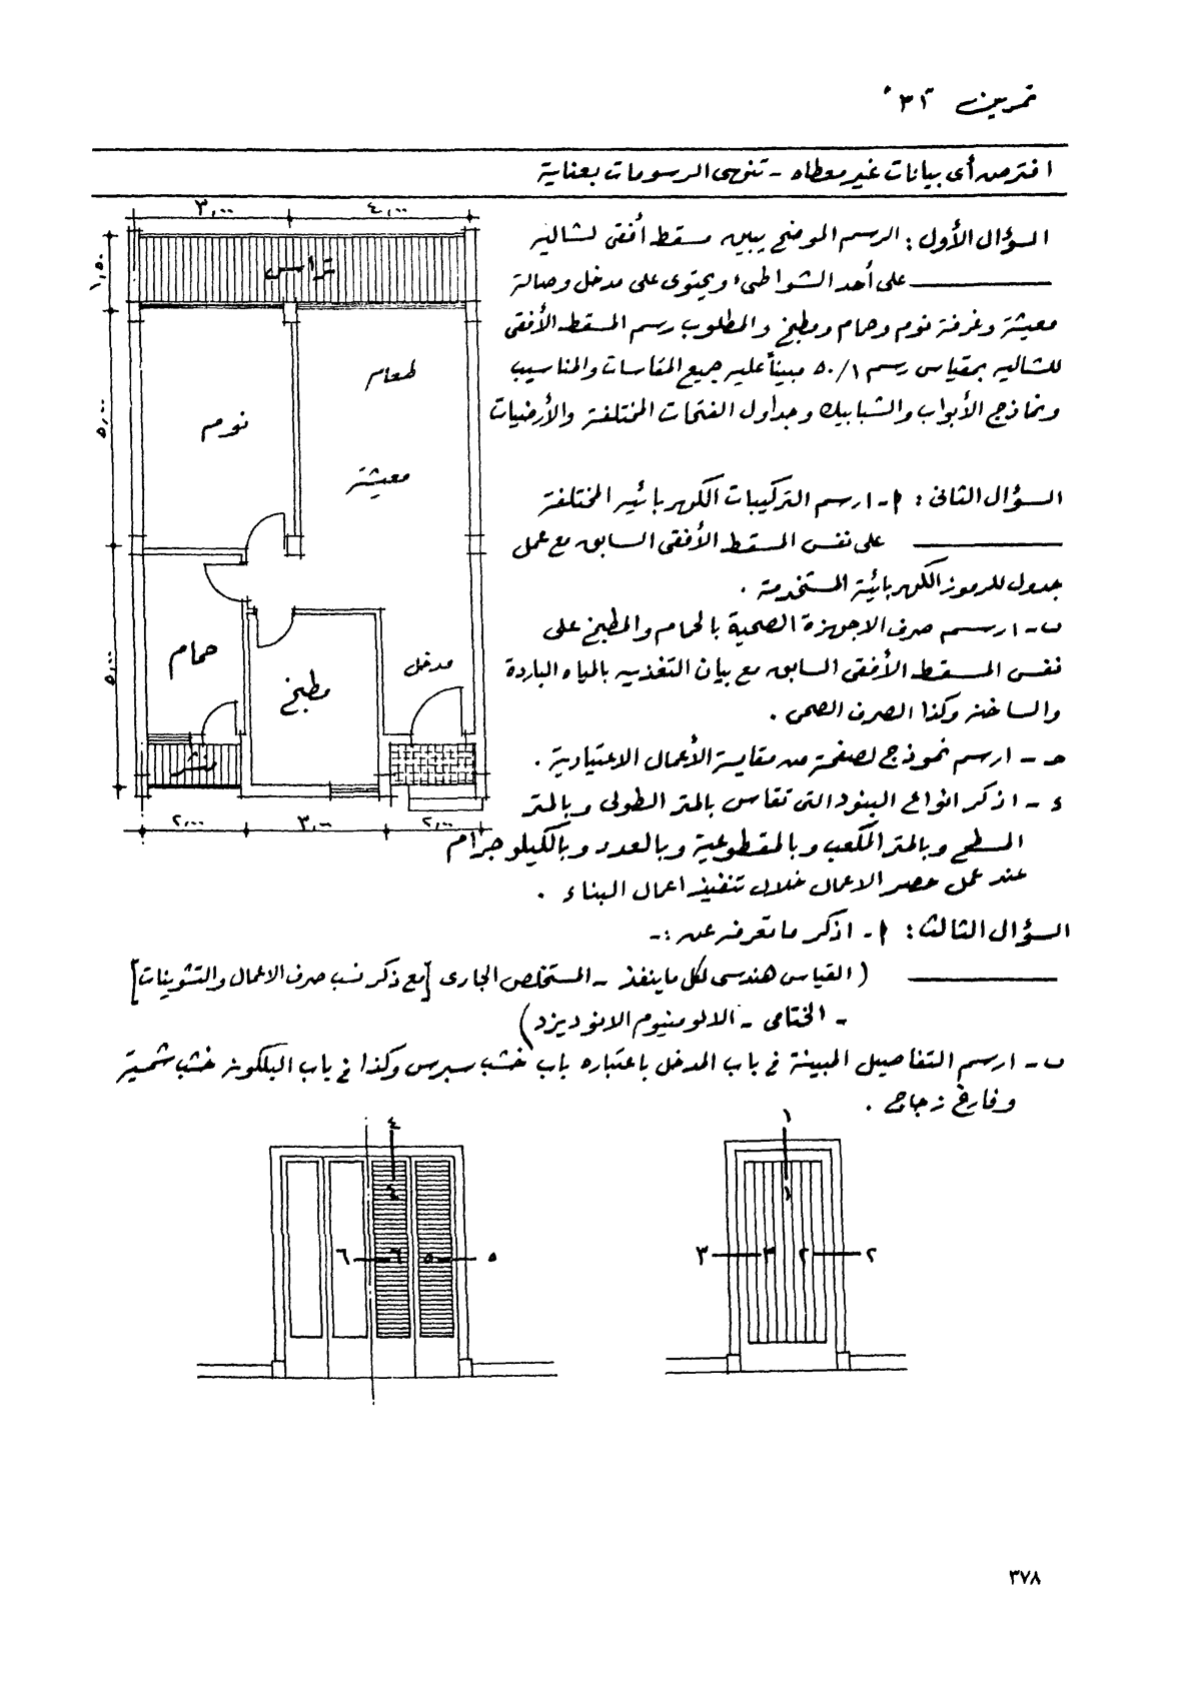 تمرين ٣٢
افترض أى بيانات غير معطاه - تنهى الرسومات بعناية
٣,٠٠
٤,٠٠
١,٥٠
٥,٠٠
٥,٠٠
تراس
طعام
نوم
معيشة
حمام
مطبخ
مدخل
منشر
٢,٠٠
٣,٠٠
٢,٠٠
السؤال الأول : الرسم الموضح يبين مسقط أفقى لشاليه
على أحد الشواطىء ويحتوى على مدخل وصالة
معيشة وغرفة نوم وحمام ومطبخ والمطلوب رسم المسقط الأفقى
للشاليه بمقياس رسم ٥٠/١ مبيناً عليه جميع المقاسات والمناسيب
ونماذج الأبواب والشبابيك وجداول الفتحات المختلفة والأرضيات
السؤال الثانى : ا - ارسم التركيبات الكهربائيه المختلفة
على نفس المسقط الأفقى السابق مع عمل
جدول للرموز الكهربائية المستخدمة .
ب - ارسم صرف الاجهزة الصحية بالحمام والمطبخ على
نفس المسقط الأفقى السابق مع بيان التغذيه بالمياه الباردة
والساخنة وكذا الصرف الصحى .
حـ - ارسم نموذج لصفحة من مقايسة الأعمال الاعتيادية .
ء - اذكر انواع البنود التى تقاس بالمتر الطولى وبالمتر
المسطح وبالمتر المكعب وبالمقطوعية وبالعدد وبالكيلو جرام
عند عمل حصر الاعمال خلال تنفيذ اعمال البناء .
السؤال الثالث : ا - اذكر ما تعرفه عن :-
( القياس هندسى لكل ما ينفذ - المستخلص الجارى [مع ذكر نسب صرف الاعمال والتشوينات]
- الختامى - الالومنيوم الانوديزد )
ب - ارسم التفاصيل المبينة فى باب المدخل باعتباره باب خشب سبرس وكذا فى باب البلكونة خشب شمسية
وفارغ زجاج .
٤
٤
٦
٦
٥
٥
١
١
٣
٣
٢
٢
٣٧٨